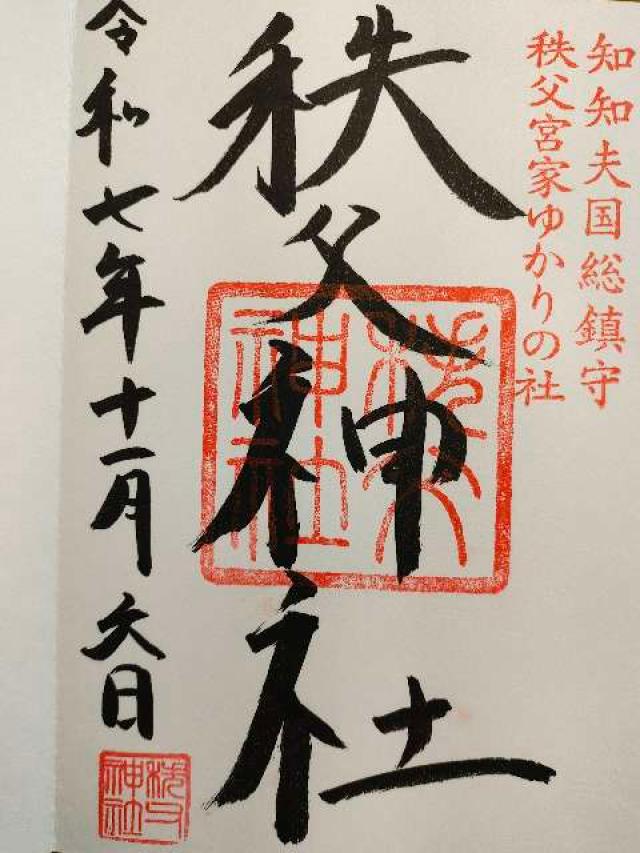 知知夫国総鎮守
秩父宮家ゆかりの社
秩父神社
秩父
神社
令和七年十一月六日
秩父
神社